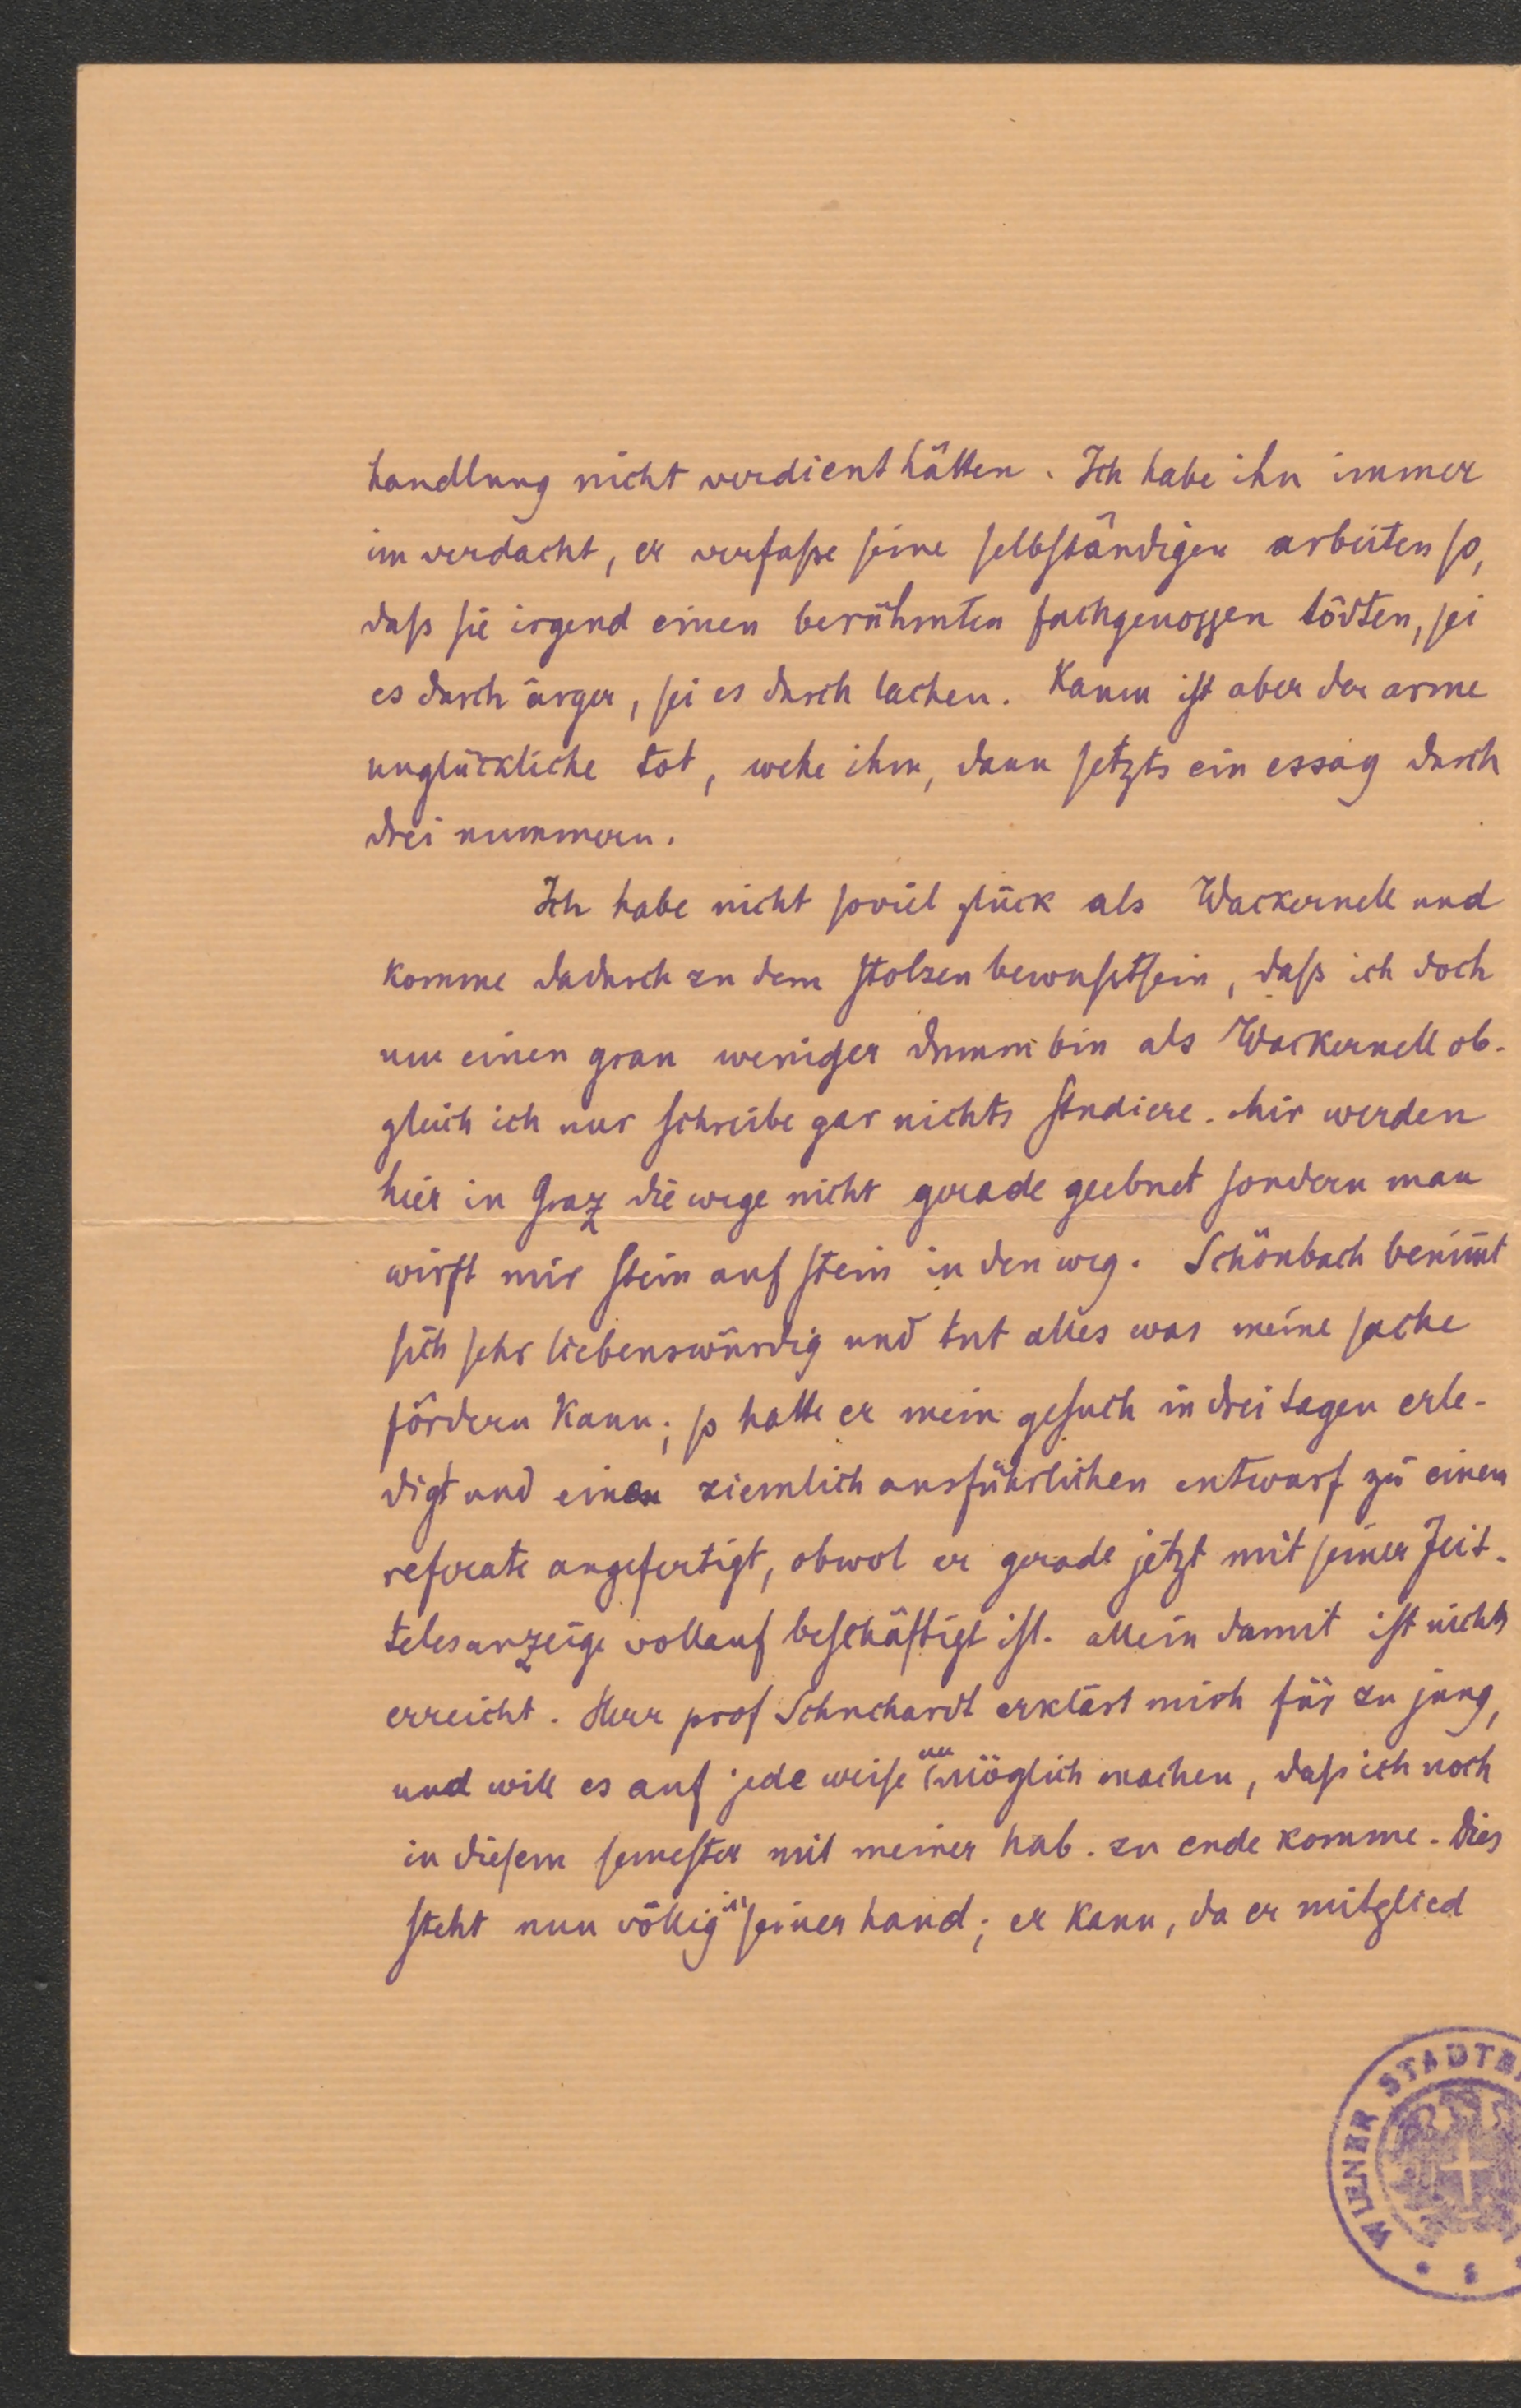 handlung nicht verdient hätten. Ich habe ihn immer
im verdacht, er verfaſse ſeine ſelbſtändigen arbeiten ſo,
daſs ſie irgend einen berühmten fachgenoſſen tödten, ſei
es durch ärger, ſei es durch lachen. Kaum iſt aber der arme
unglückliche tot, wehe ihm, dann ſetzts ein essay durch
drei nummern.
Ich habe nicht ſoviel glück als Wackernell und
komme dadurch zu dem ſtolzen bewuſstſein, daſs ich doch
um einen gran weniger dumm bin als Wackernell ob-
gleich ich nur ſchreibe gar nichts ſtudiere. Mir werden
hier in Graz die wege nicht gerade geebnet ſondern man
wirft mir ſtein auf ſtein in den weg. Schönbach benim̅t
ſich ſehr liebenswürdig und tut alles was meine ſache
fördern kann; ſo hatte er mein geſuch in drei tagen erle-
digt und einen ziemlich ausführlichen entwurf zu einem
referate angefertigt, obwol er gerade jetzt mit ſeiner Zeit-
telesanzeige vollauf beſchäftigt iſt. allein damit iſt nichts
erreicht. Herr prof Schuchardt erklärt mich für zu jung,
und will es auf jede weiſe unmöglich machen, daſs ich noch
in dieſem ſemeſter mit meiner hab. zu ende komme. Dies
ſteht nun völlig in ſeiner hand; er kann, da er mitglied
WIENER STADTB